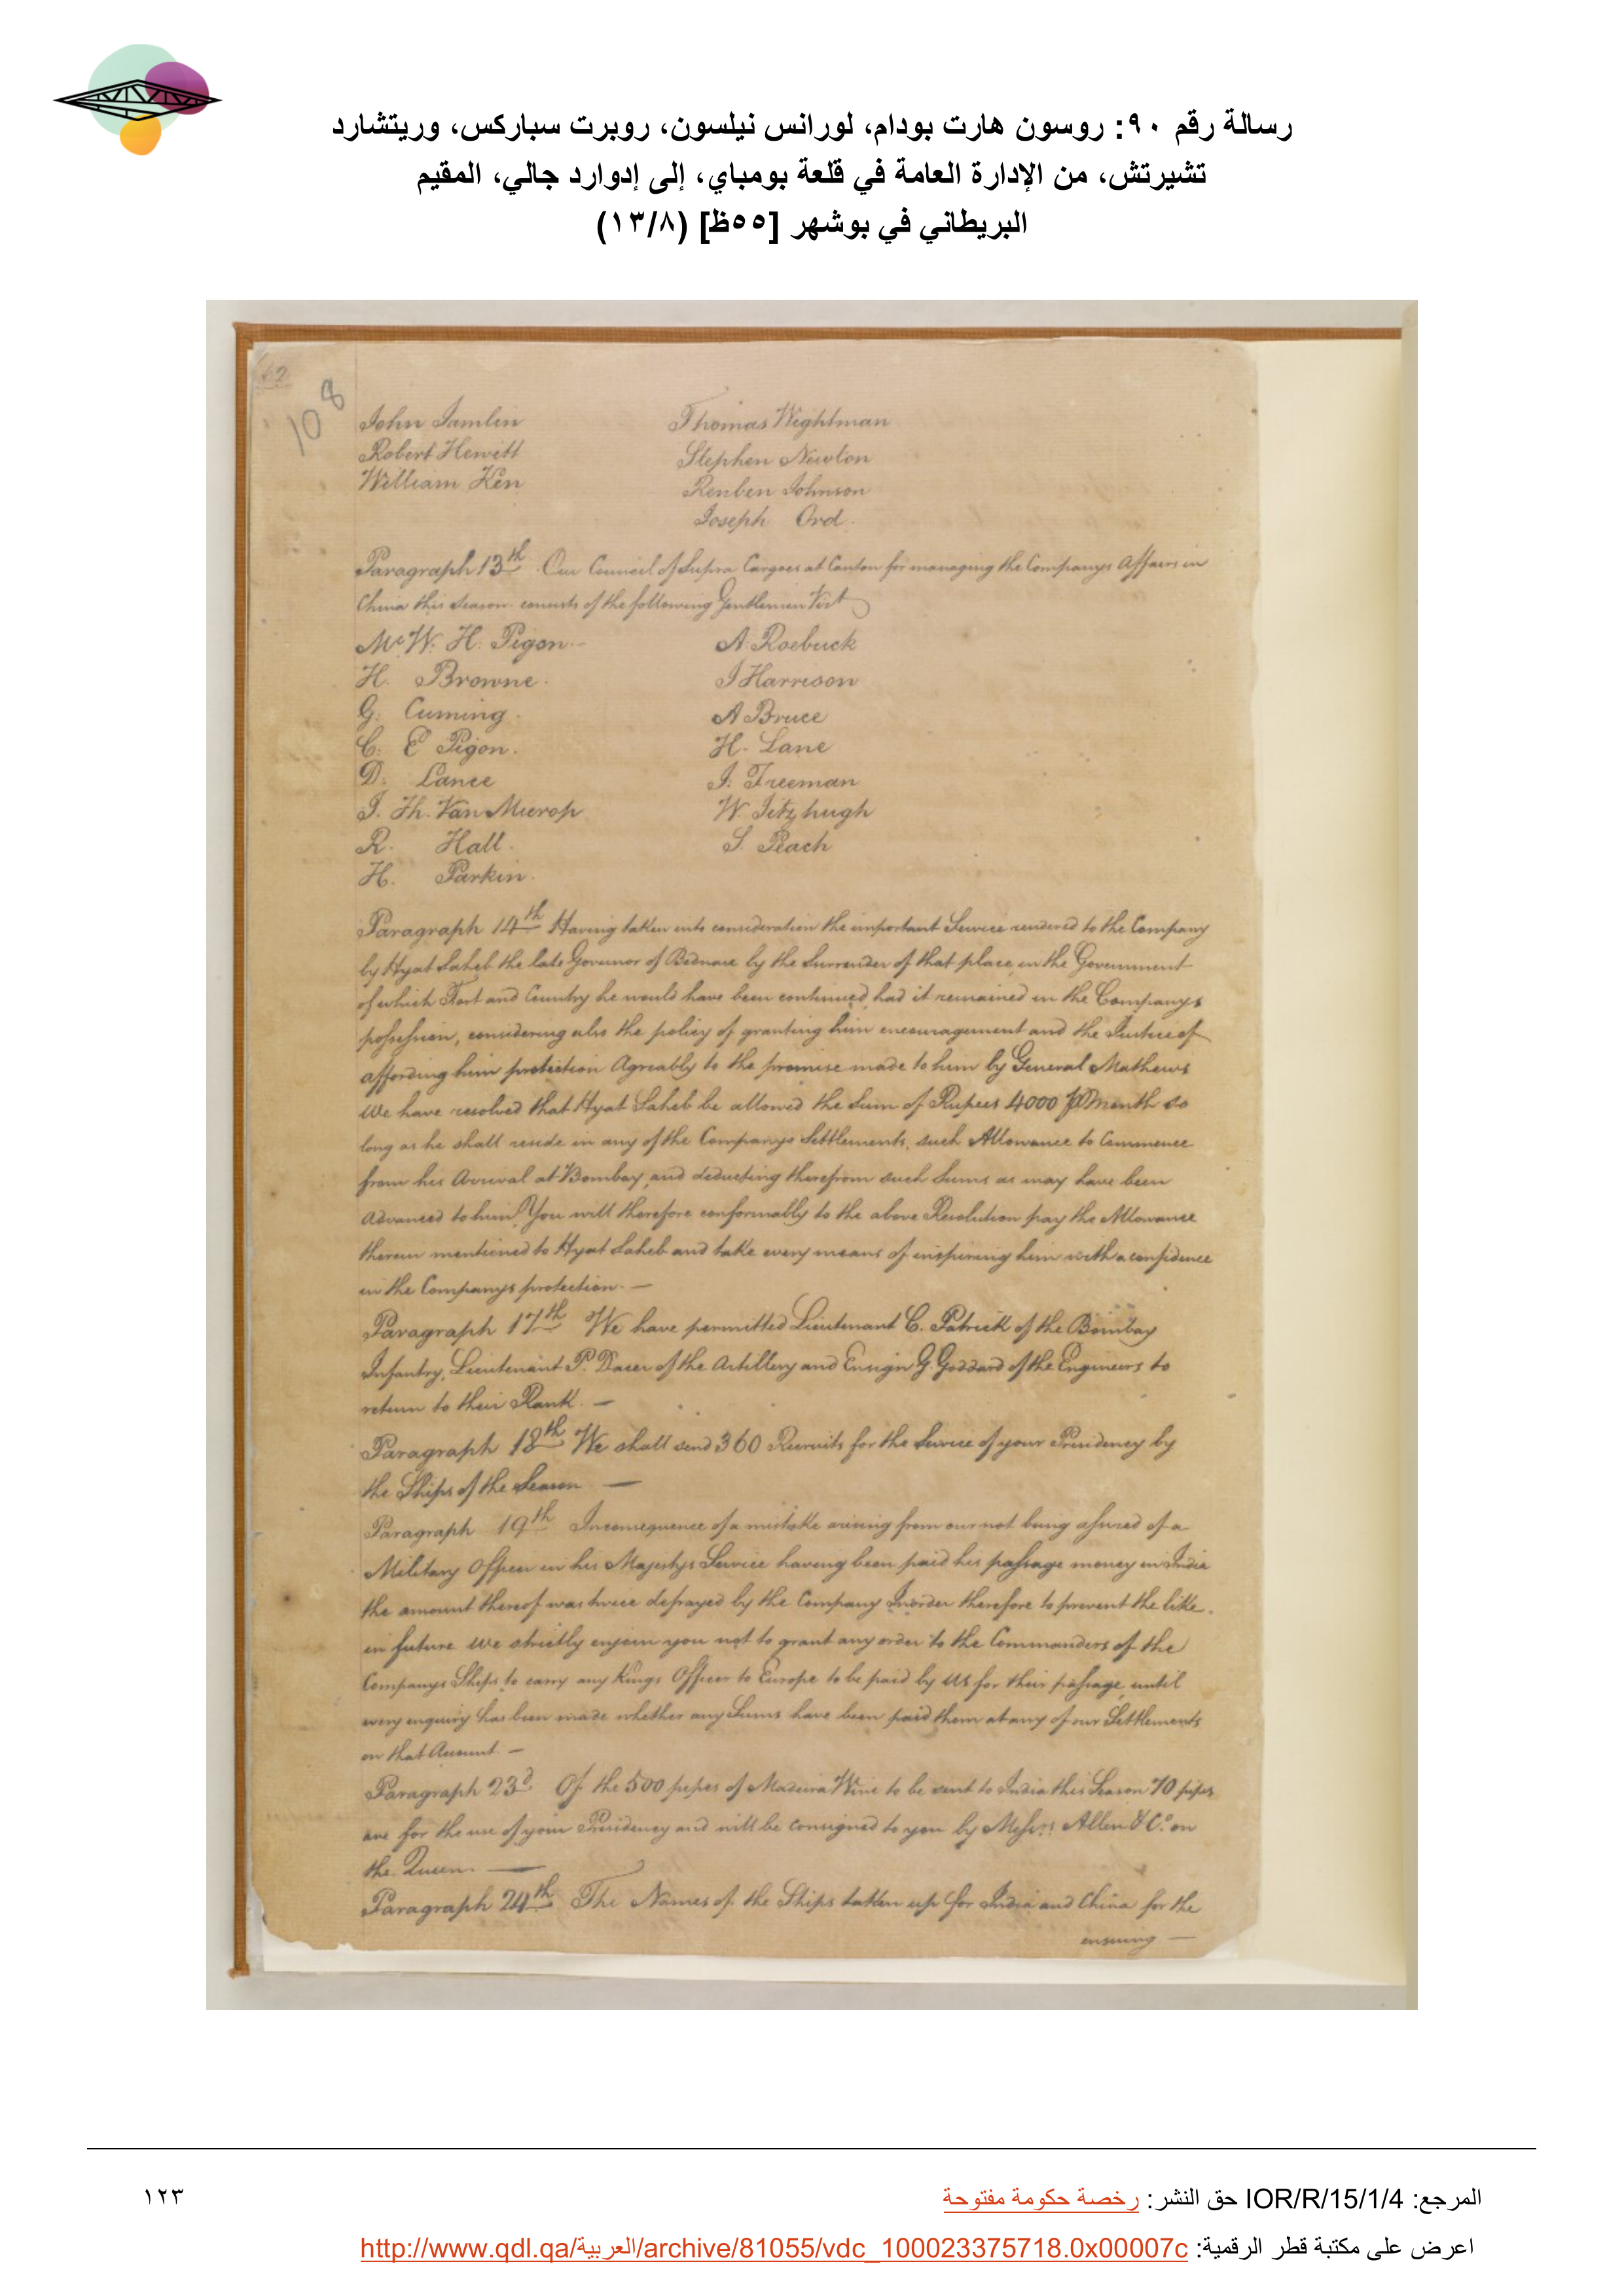 رسالة رقم ٩٠: روسون هارت بودام، لورانس نيلسون، روبرت سباركس، وريتشارد
تشيرتش، من الإدارة العامة في قلعة بومباي، إلى إدوارد جالي، المقيم
البريطاني في بوشهر [٥٥ظ] (١٣/٨)
62
108
John Tamlin Thomas Wightman
Robert Hewitt Stephen Newton
William Ken Reuben Johnson
Joseph Ord.
Paragraph 13th Our Council of Supra Cargoes at Canton for managing the Companys Affairs in
China this Season consists of the following Gentlemen Vizt
Mr. W. H. Pigon A. Roebuck
H. Browne. I Harrison
G. Cuming. A Bruce
C. E Pigon. H. Lane
D. Lance I. Freeman
I. Th. Van Mierop W. Fitzhugh
R. Hall. S. Peach
H. Parkin.
Paragraph 14th Having taken into consideration the important Service rendered to the Company
by Hyat Saheb the late Governor of Bednure by the Surrender of that place, in the Government
of which Fort and Country he would have been continued, had it remained in the Companys
possession, considering also the policy of granting him encouragement and the Justice of
affording him protection Agreably to the promise made to him by General Mathews
We have resolved that Hyat Saheb be allowed the Sum of Rupees 4000 P Month so
long as he shall reside in any of the Companys Settlements, such Allowance to Commence
from his Arrival at Bombay, and deducting therefrom such Sums as may have been
Advanced to him. You will therefore conformably to the above Resolution pay the Allowance
therein mentioned to Hyat Saheb and take every means of inspiring him with a confidence
in the Companys protection. —
Paragraph 17th We have permitted Lieutenant C. Patrick of the Bombay
Infantry, Lieutenant P. of the Artillery and Ensign G. Goddard of the Engineers to
return to their Rank. —
Paragraph 18th We shall send 360 Recruits for the Service of your Presidency by
the Ships of the Season —
Paragraph 19th Inconsequence of a mistake arising from our not being assured of a
Military Officer in his Majestys Service having been paid his passage money in India
the amount thereof was twice defrayed by the Company Inorder therefore to prevent the like
in future We strictly enjoin you not to grant any order to the Commanders of the
Companys Ships to carry any Kings Officer to Europe to be paid by us for their passage, until
every enquiry has been made whether any Sums have been paid them at any of our Settlements
on that Account —
Paragraph 23d Of the 500 pipes of Madeira Wine to be sent to India this Season 70 pipes
are for the use of your Presidency and will be consigned to you by Messrs Allen & Co. on
the Queen. —
Paragraph 24th The Names of the Ships taken up for India and China for the
ensuing —
المرجع: IOR/R/15/1/4 حق النشر: رخصة حكومة مفتوحة
١٢٣
اعرض على مكتبة قطر الرقمية: http://www.qdl.qa/العربية/archive/81055/vdc_100023375718.0x00007c